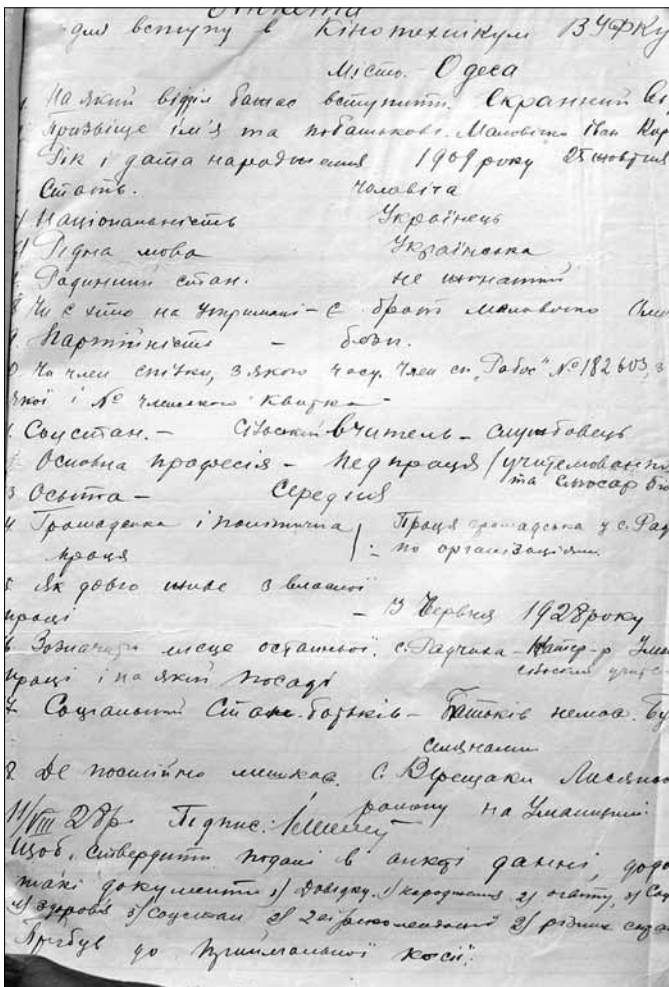 Анкета
для вступу в Кінотехнікум ВУФКУ
Місто. Одеса
На який відділ бажає вступити. Екранний
Призвіще ім'я та побатькові. Маловічко Іван
Рік і дата народження 1909 року 25 жовтня
Стать. Чоловіча
Національність Українець
Рідна мова Українська
Родинний стан. не жонатий
8 Чи є хто на утриманні – є брат Маловічко
9. Партійність – безп.
Чи член спілки, з якого часу. Член сп. „Робос" № 182603, з
якої і № членського квитка –
Соцстан. – сільский вчитель – службовець
Основна професія – педпраця /
та слюсар
3 Освіта – Середня
4 Громадська і політична / Праця громадська у с.
праця : – по організаціям.
5 Як довго живе з власної
праці – з Червня 1928 року
6 Зозначити місце останньої. с. Радчиха –
праці і на якій посаді
7. Соціальний Стан. батьків – Батьків немає.
селянами
8 Де постійно мешкає. С. Верещаки
району на Уманщині
11/VIII 28р. Підпис:
Щоб, ствердити подані в анкті данні,
такі документи 1) Довідку. 1) народження 2) освіту, 3)
4) здоровя 5) соцстан 2)
Прибув до Приймальної Косії.